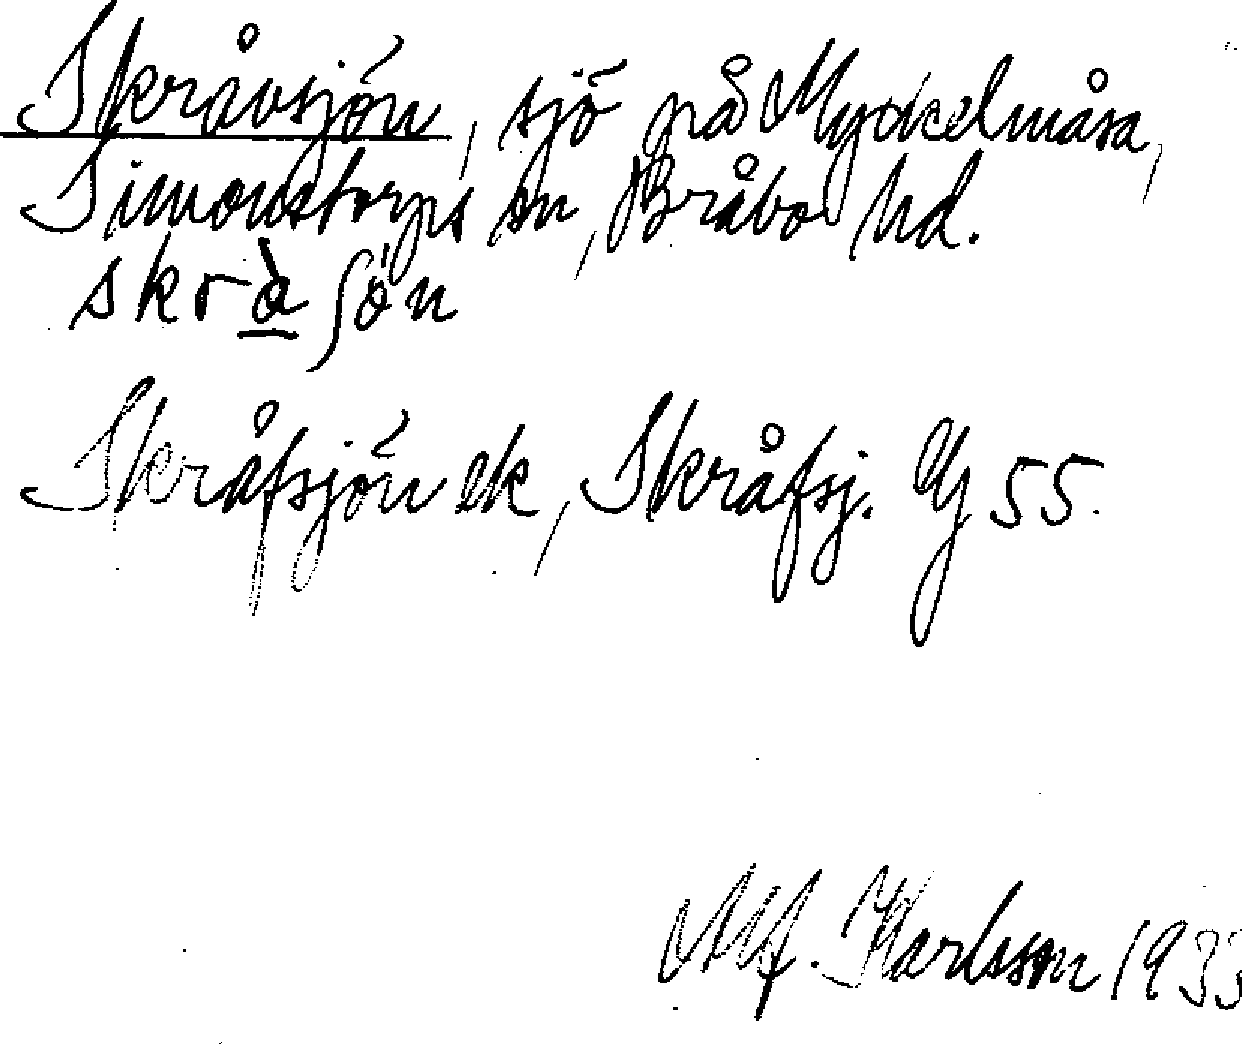 Skråvsjön, sjö på Myckelmåsa,
Simonstorps sn, Bråbo hd.
skràʃön
Skråfsjön ek, Skråfsj. Gj 55.
Alf. Karlsson 1933